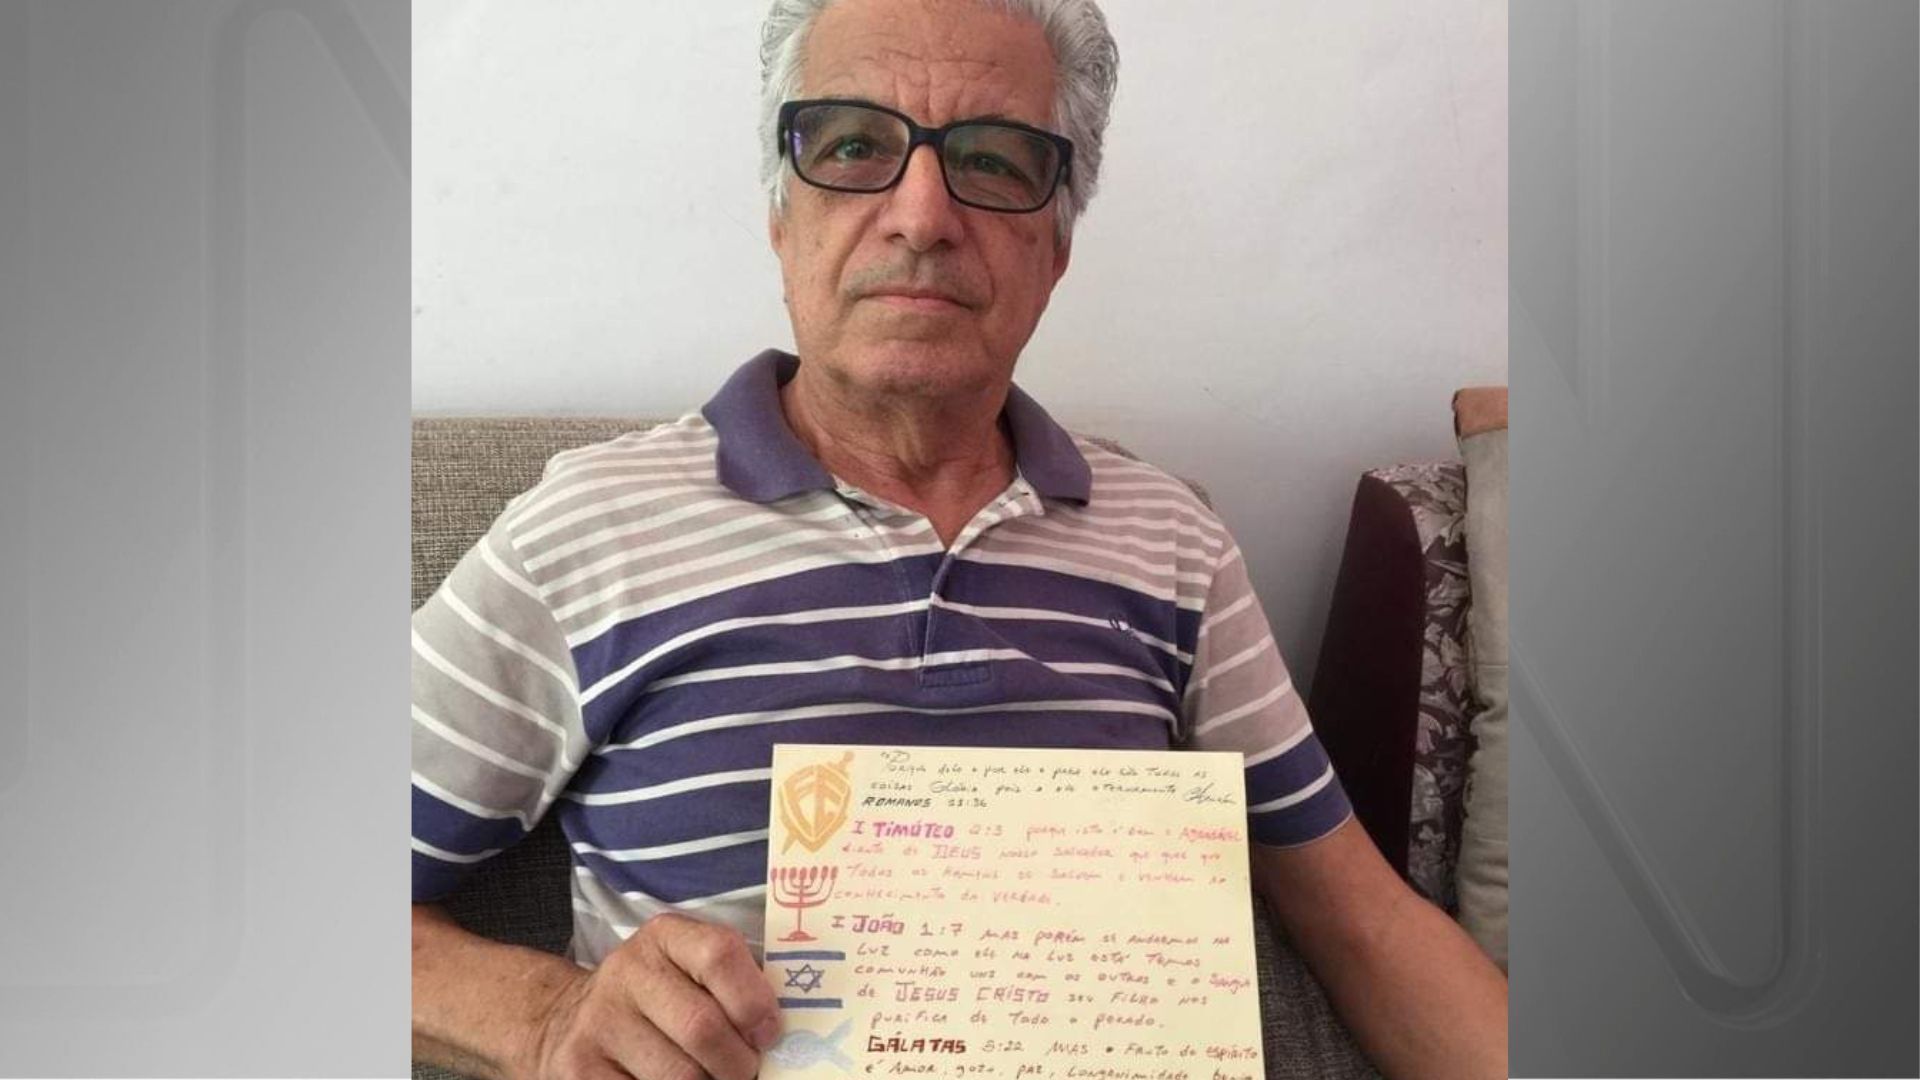 "Porque dele e por ele e para ele são todas as
coisas Glória pois a ele eternamente Amém
ROMANOS 11:36
I TIMÓTEO 2:3 porque isto é bom e Agradável
diante de DEUS nosso Salvador que quer que
Todos os homens se salvem e venham ao
conhecimento da verdade.
I JOÃO 1:7 MAS porém se andarmos na
Luz como ele na Luz está Temos
comunhão uns com os outros e o Sangue
de JESUS CRISTO seu Filho nos
purifica de Todo o pecado.
GÁLATAS 5:22 MAS o Fruto do espírito
é Amor, gozo, paz, Longanimidade,